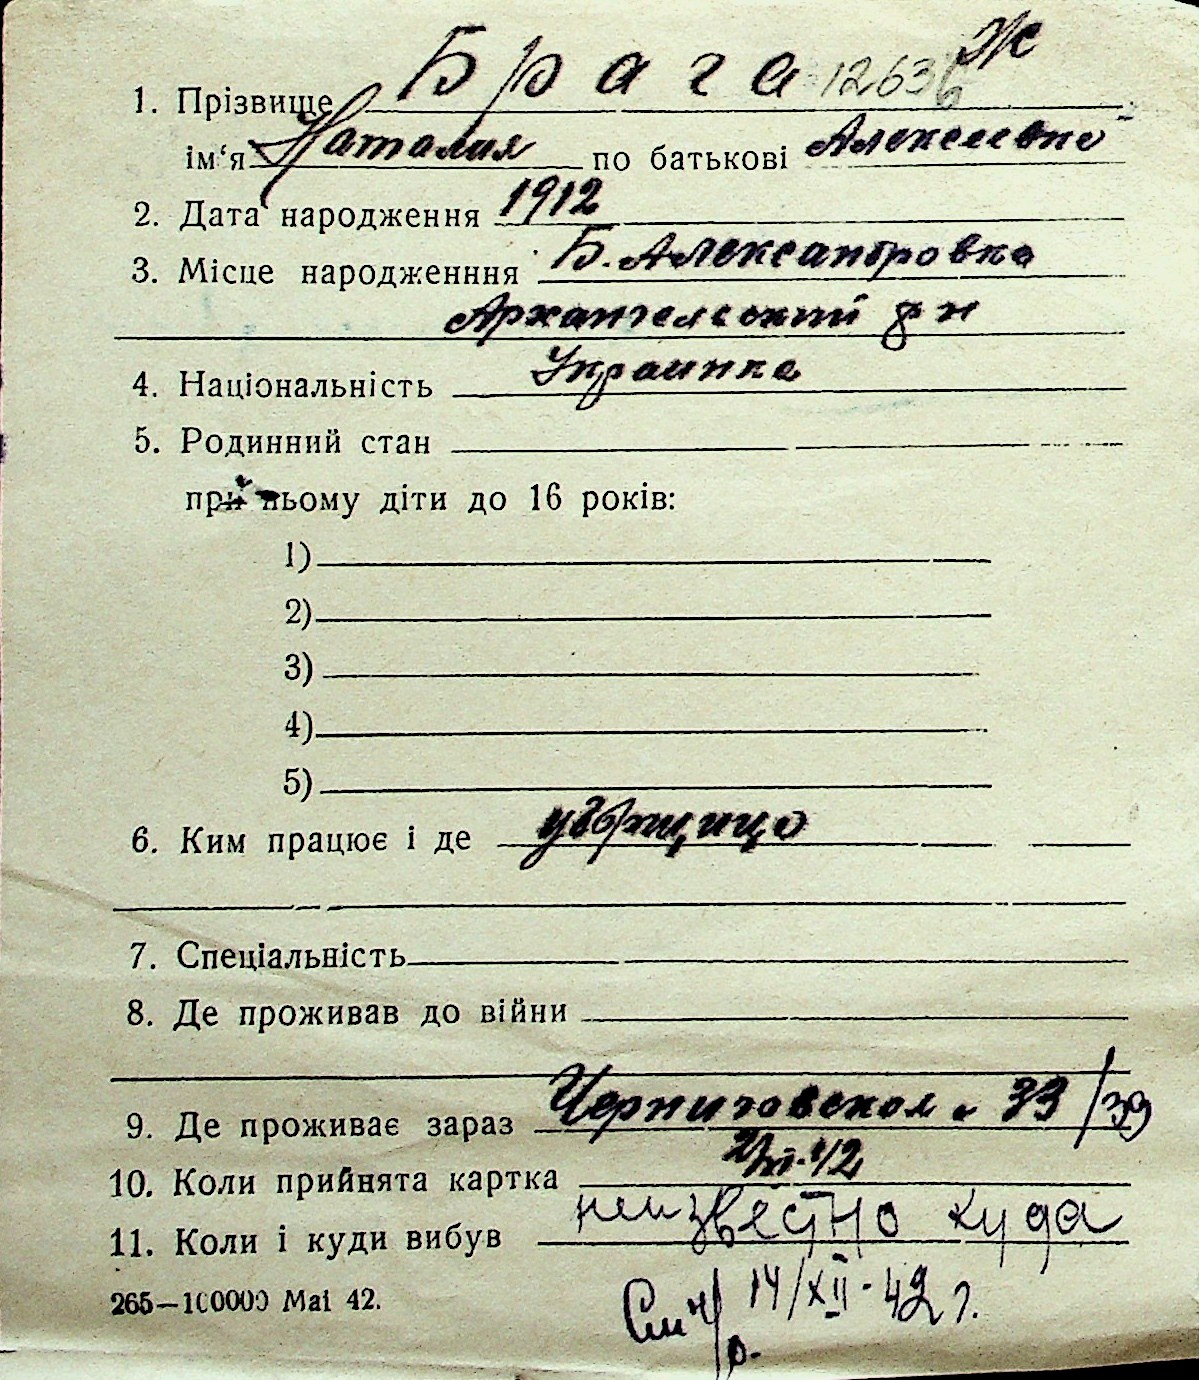 Ж
1. Прізвище Брага 12636
ім‘я Наталия по батькові Алексеевна
2. Дата народження 1912
3. Місце народженння Б. Александровка
Архангельский р н
4. Національність Украинка
5. Родинний стан
при ньому діти до 16 років:
1)
2)
3)
4)
5)
6. Ким працює і де уборщица
7. Спеціальність
8. Де проживав до війни
9. Де проживає зараз Черниговская 33/39
10. Коли прийнята картка
11. Коли і куди вибув неизвестно куда
265—100000 Mai 42.
14/XII-42 г.